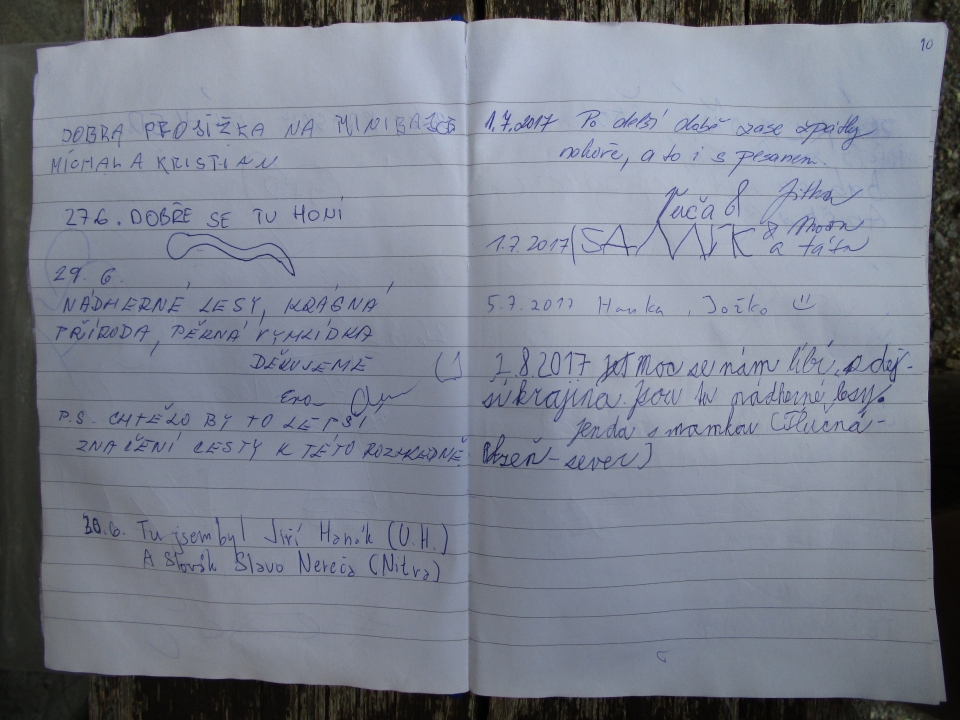 DOBRÁ PROJÍŽKA NA MINIBAJCE
MICHAL A KRISTIAN
27.6. DOBŘE SE TU HONÍ
29. 6.
NÁDHERNÉ LESY, KRÁSNÁ
PŘÍRODA, PĚKNÁ VYHLÍDKA
DĚKUJEME
Eva
P.S. CHTĚLO BY TO LEPŠÍ
ZNAČENÍ CESTY K TÉTO ROZHLEDNĚ
30.6. Tu jsem byl Jiří Hanák (U.H.)
A Slovák Slavo Nereča (Nitra)
10
1.7.2017 Po delší době zase zpátky
nahoře, a to i s pesanem.
Jitka
1.7.2017 SAMÍK & mama
a táta
5.7.2017 Hanka, Jožko
2.8.2017 Jet moc se nám líbí zdej-
sí krajina. Jsou tu nádherné lesy.
Jenda s mamkou (Plúcná-
Plzeň-sever)